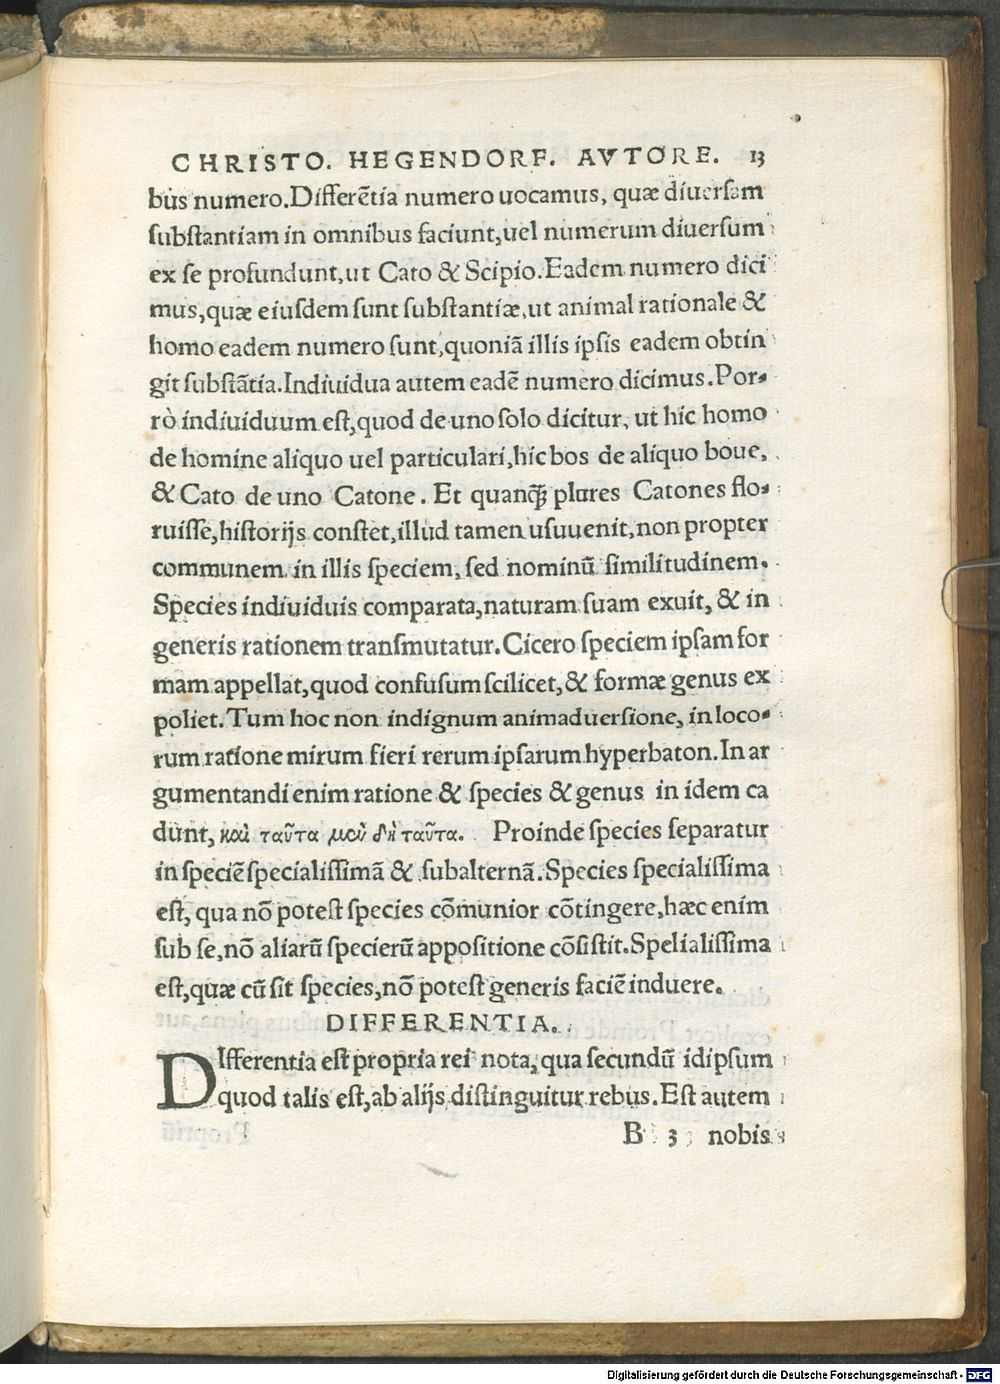 CHRISTO. HEGENDORF. AVTORE. 13
bus numero.Differẽtia numero uocamus, quæ diuersam
ſubſtantiam in omnibus faciunt,uel numerum diuerſum
ex ſe profundunt,ut Cato & Scipio.Eadem numero dici
mus,quæ eiuſdem ſunt ſubſtantiæ,ut animal rationale &
homo eadem numero ſunt,quoniã illis ipſis eadem obtin
git ſubſtãtia.Indiuidua autem eadẽ numero dicimus.Por⸗
rò indiuiduum eſt,quod de uno ſolo dicitur, ut hic homo
de homine aliquo uel particulari,hic bos de aliquo boue,
& Cato de uno Catone. Et quanq̃ꝫ plures Catones flo⸗
ruiſſe,hiſtorijs conſtet,illud tamen uſuuenit,non propter
communem in illis ſpeciem, ſed nominũ ſimilitudinem.
Species indiuiduis comparata,naturam ſuam exuit, & in
generis rationem tranſmutatur.Cicero ſpeciem ipſam for
mam appellat,quod confuſum ſcilicet,& formæ genus ex
poliet.Tum hoc non indignum animaduerſione, in loco⸗
rum ratione mirum fieri rerum ipſarum hyperbaton.In ar
gumentandi enim ratione & ſpecies & genus in idem ca
dunt, καὶ ταῦτα μεὺ δὴ ταῦτα. Proinde ſpecies ſeparatur
in ſpeciẽ ſpecialiſſimã & ſubalternã.Species ſpecialiſſima
eſt, qua nõ poteſt ſpecies cõmunior cõtingere,hæc enim
ſub ſe,nõ aliarũ ſpecierũ appoſitione cõſiſtit.Spelialiſſima
eſt,quæ cũ ſit ſpecies,nõ poteſt generis faciẽ induere.
DIFFERENTIA.
DIfferentia eſt propria rei nota, qua ſecundũ idipſum
quod talis eſt,ab alijs diſtinguitur rebus.Eſt autem
B 3 nobis
Digitalisierung gefördert durch die Deutsche Forschungsgemeinschaft - DFG